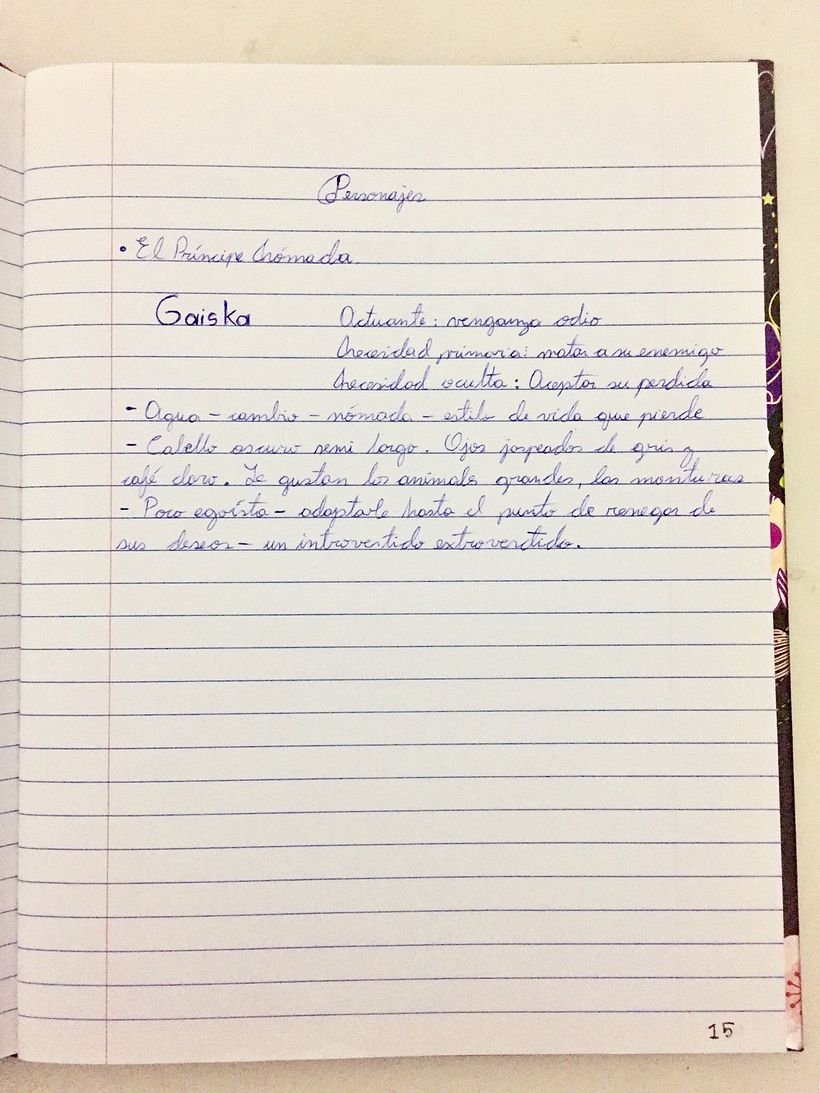 Personajes
• El Príncipe Nómada.
Gaiska Actuante: venganza odio
Necesidad primaria: matar a su enemigo
Necesidad oculta: Aceptar su perdida
- Agua - cambio - nómada - estilo de vida que pierde
- Cabello oscuro semi largo. Ojos jaspeados de gris y
café claro. Le gustan los animales grandes, las monturas
- Poco egoísta - adaptable hasta el punto de renegar de
sus deseos - un introvertido extrovertido.
15